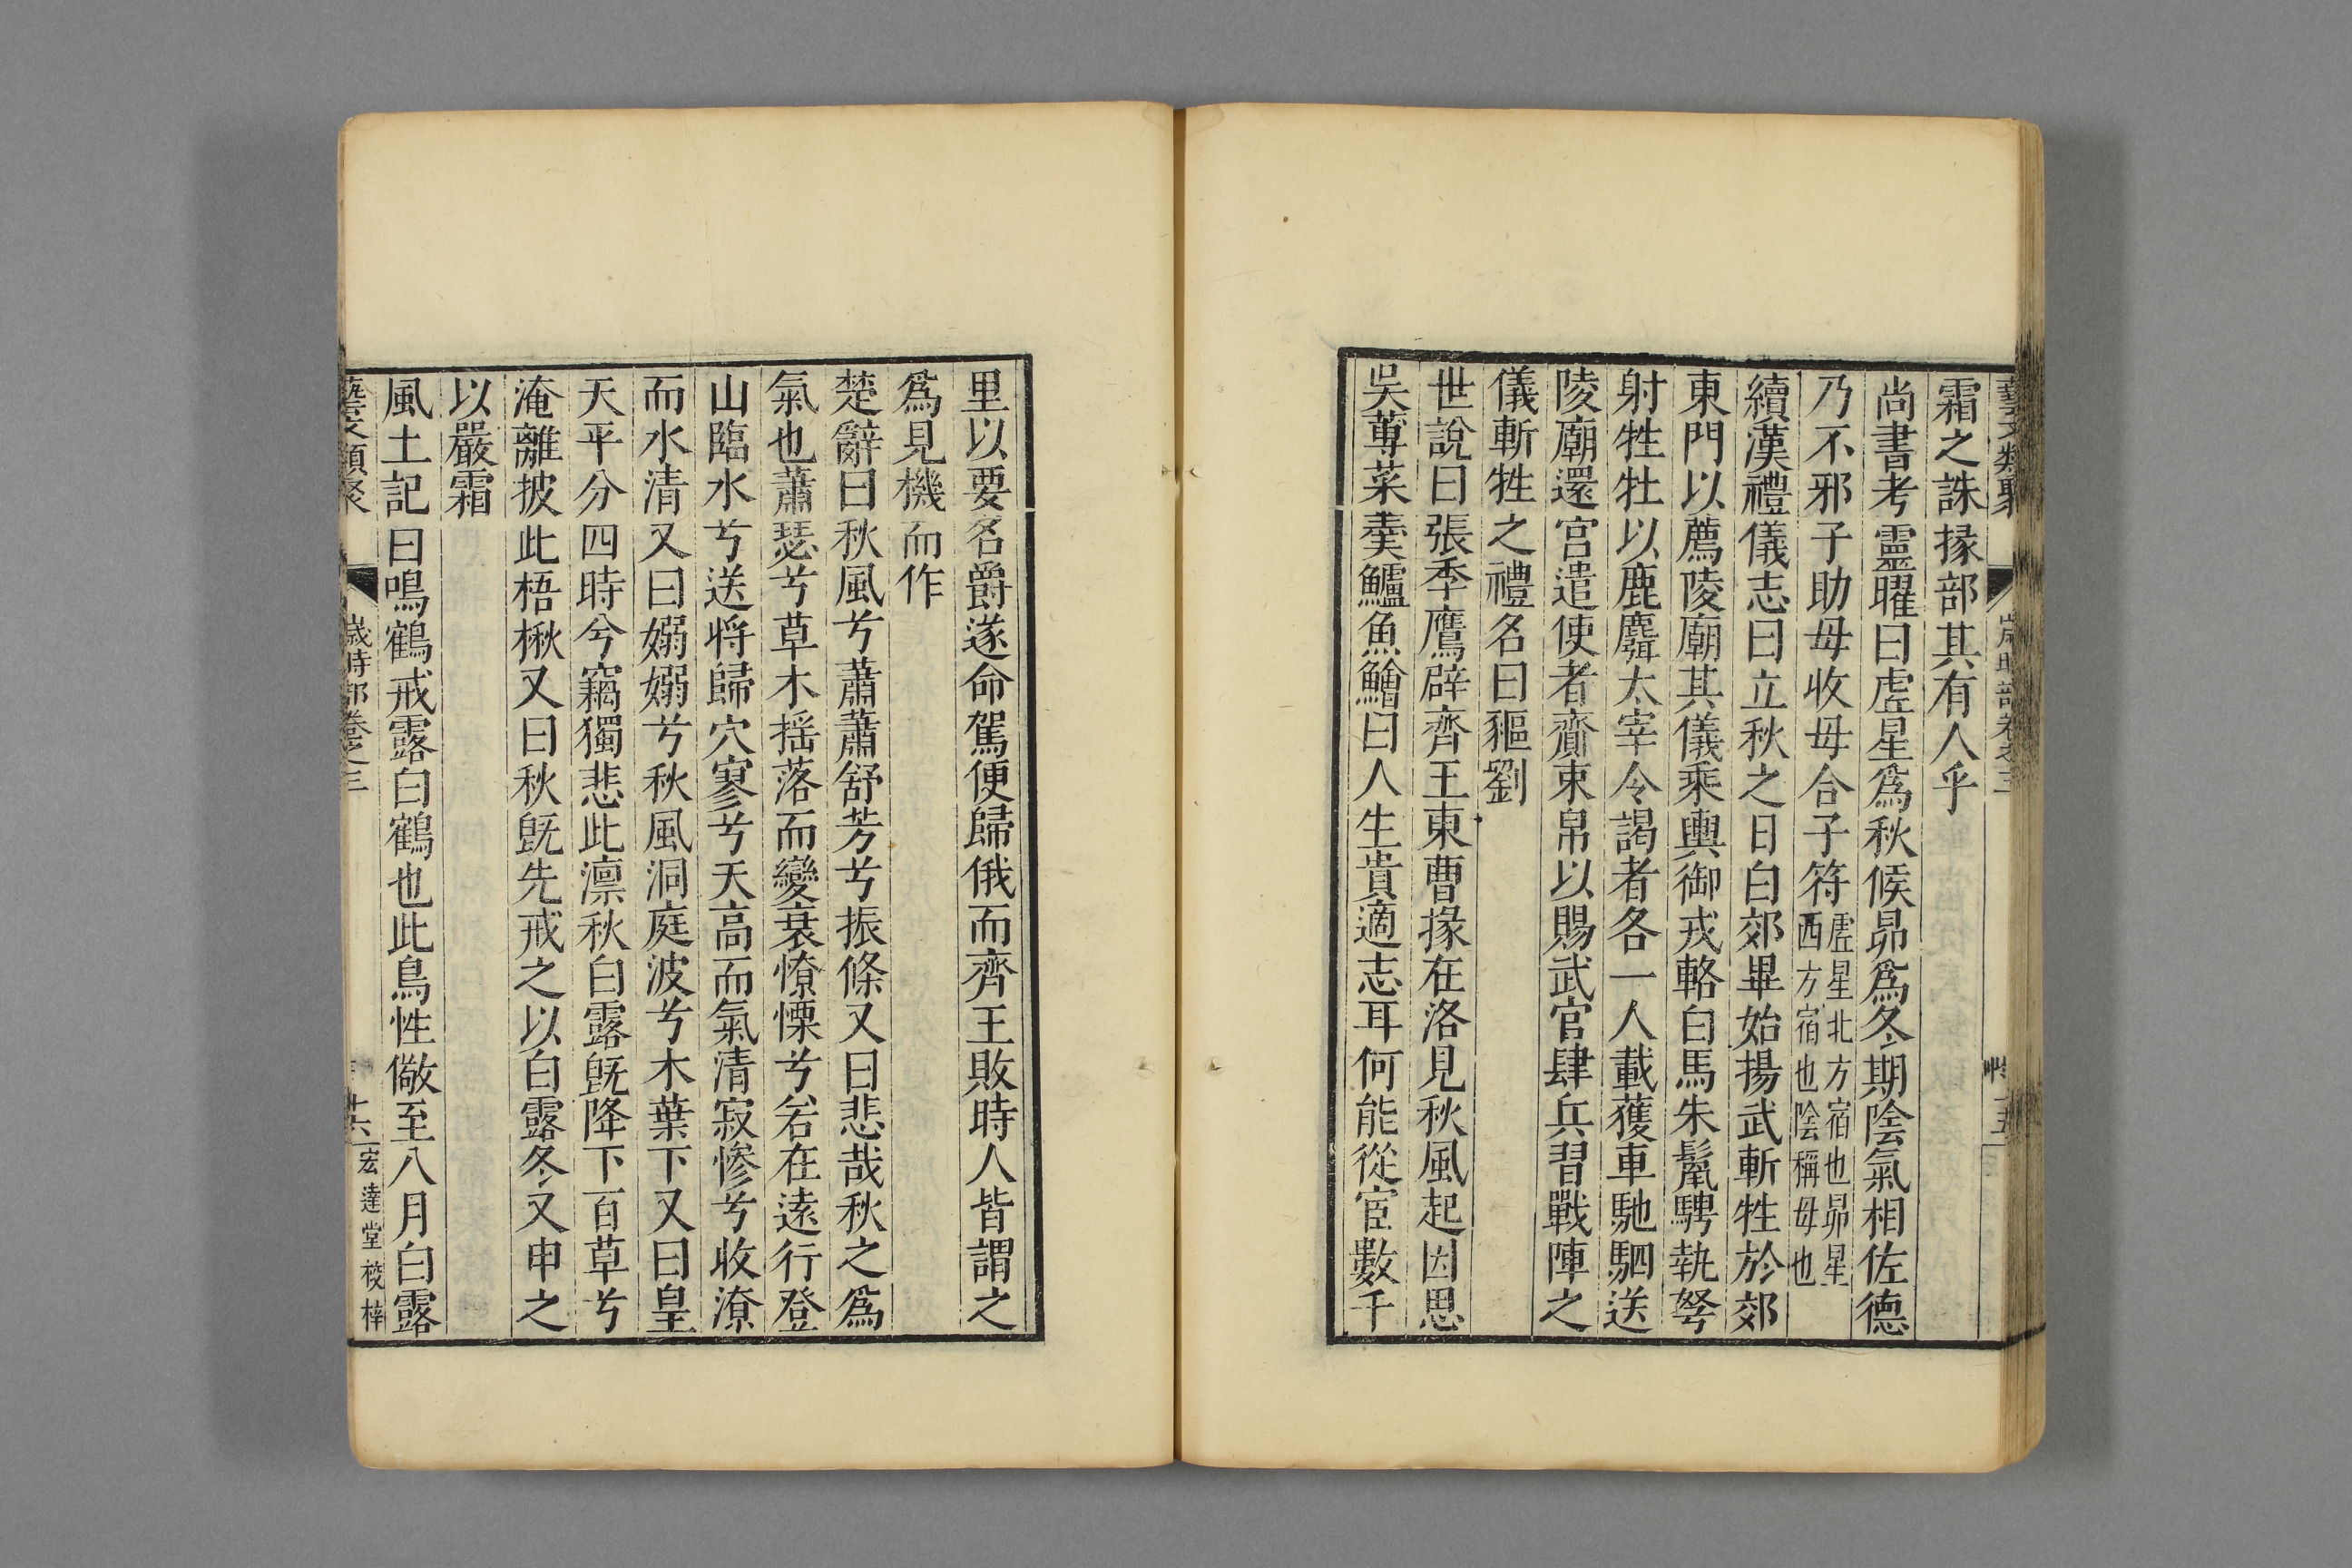 藝文類聚 歲時部卷之三
霜之誅掾部其有人乎
尚書考靈曜曰虗星爲秋候昴爲冬期陰氣相佐德
乃不邪子助毋收毋合子符虗星北方宿也昴星西方宿也陰稱毋也
續漢禮儀志曰立秋之日白郊畢始揚武斬牲於郊
東門以薦陵廟其儀乘輿御戎輅白馬朱鬛騁執弩
射牲牡以鹿麛太宰令謁者各一人載獲車馳駟送
陵廟還宫遣使者齎束帛以賜武官肆兵習戰陣之
儀斬牲之禮名曰貙劉
世說曰張季鷹辟齊王東曹掾在洛見秋風起因思
吳蓴菜羮鱸魚鱠曰人生貴適志耳何能從宦數千
里以要名爵遂命駕便歸俄而齊王敗時人皆謂之
爲見機而作
楚辭曰秋風兮蕭蕭舒芳兮振條又曰悲哉秋之爲
氣也蕭瑟兮草木摇落而變衰憭慄兮若在逺行登
山臨水兮送将歸穴寥兮天高而氣清寂慘兮收潦
而水清又曰嫋嫋兮秋風洞庭波兮木葉下又曰皇
天平分四時兮竊獨悲此凛秋白露旣降下百草兮
淹離披此梧楸又曰秋旣先戒之以白露冬又申之
以嚴霜
風土記曰鳴鶴戒露白鶴也此鳥性儆至八月白露
藝文類聚 歲時部卷之三 十六 宏達堂校梓